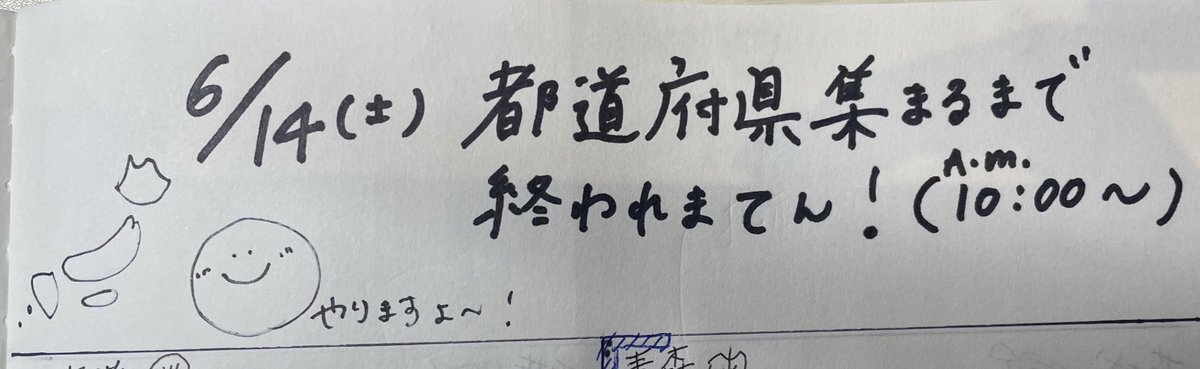 6/14(土) 都道府県集まるまで
終われまてん!(A.m. 10:00~)
やりますよ~!